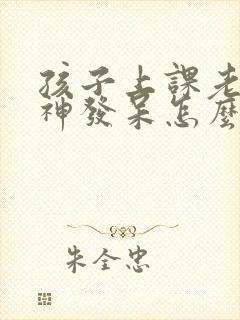 孩子上課老
神發呆怎麼
朱全忠